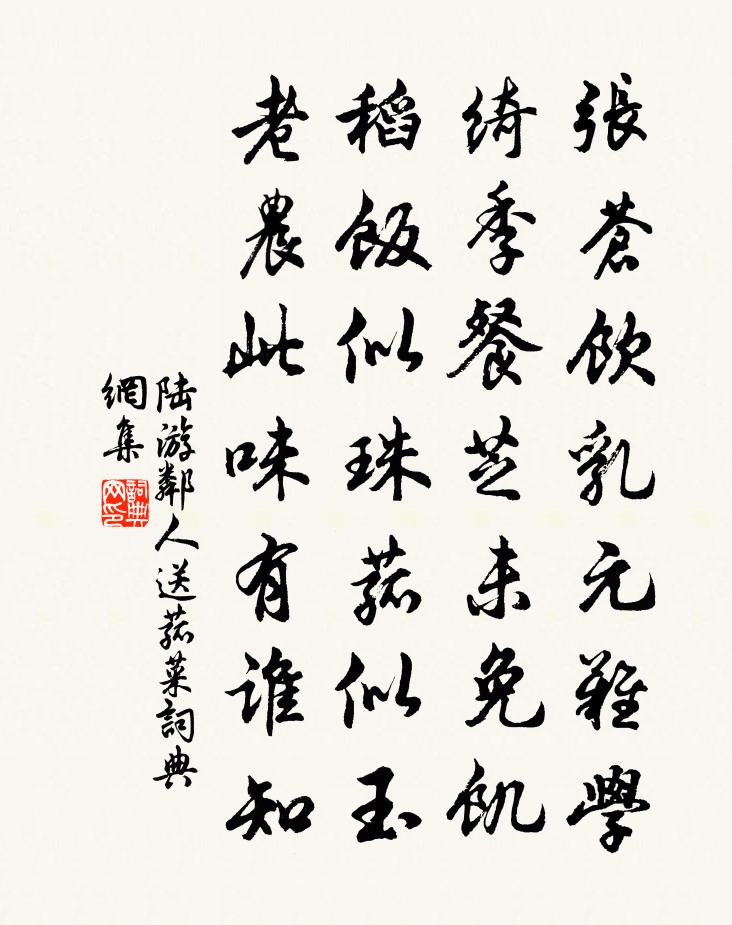 張蒼飲乳元難學
綺季餐芝未免飢
稻飯似珠菰似玉
老農此味有誰知
陸游鄰人送菰菜詞典
網集
詞典
网印